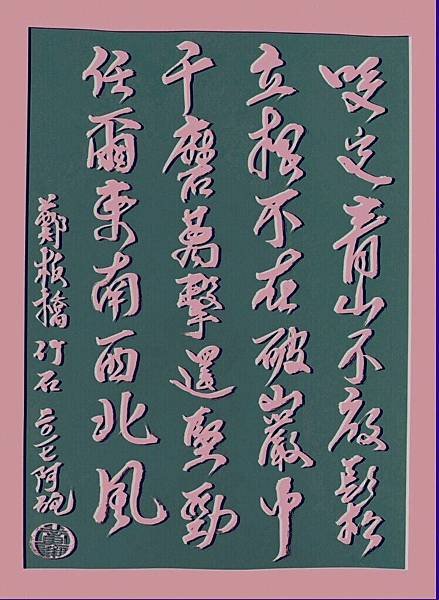 咬定青山不放鬆
立根本在破巖中
千磨萬擊還堅勁
任爾東南西北風
鄭板橋 竹石 二〇一七 阿